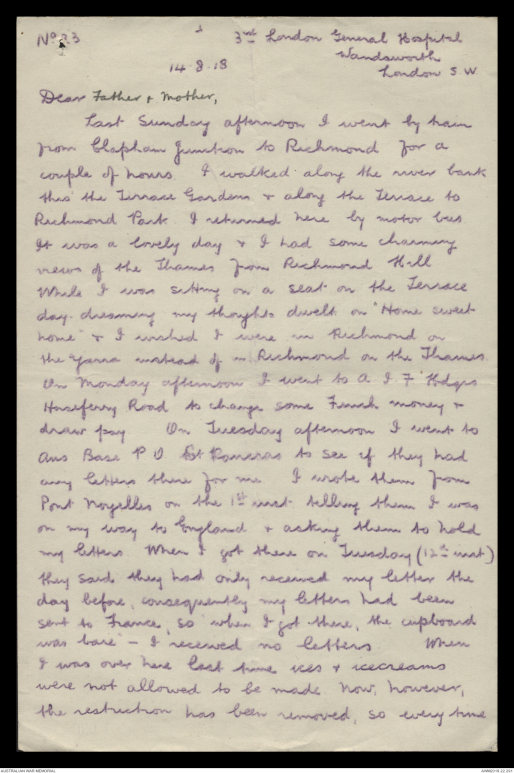 No 23
3rd London General Hospital
Wandsworth
14.8.18
London S.W
Dear Father & Mother,
Last Sunday afternoon I went by train
from Clapham Junction to Richmond for a
couple of hours. I walked along the river bank
thro' the Terrace Gardens & along the Terrace to
Richmond Park. I returned here by motor bus
It was a lovely day & I had some charming
views of the Thames from Richmond Hill
While I was sitting on a seat on the Terrace
day-dreaming my thoughts dwelt on "Home sweet
home" & I wished I were in Richmond on
the Yarra instead of in Richmond on the Thames.
On Monday afternoon I went to A I F Hdqrs
Horseferry Road to change some French money &
draw pay On Tuesday afternoon I went to
Aus Base P O St Pancras to see if they had
any letters there for me I wrote them from
Pont Noyelles on the 1st inst telling them I was
on my way to England & asking them to hold
my letters. When I got there on Tuesday (12th inst)
they said they had only received my letter the
day before, consequently my letters had been
sent to France, so "when I got there, the cupboard
was bare" - I received no letters When
I was over here last time ices & icecreams
were not allowed to be made Now, however,
the restriction has been removed, so every time
AUSTRALIAN WAR MEMORIAL